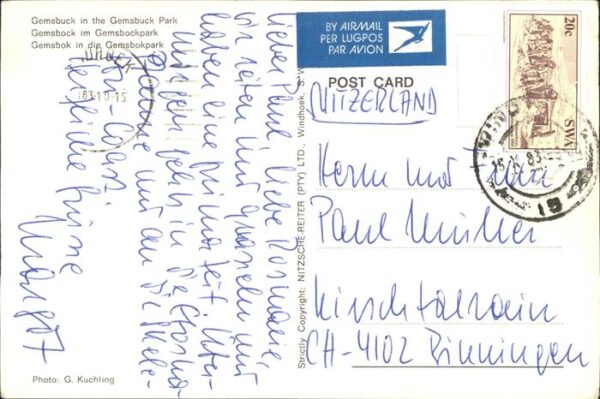 Gemsbuck in the Gemsbuck Park
Gemsbock im Gemsbockpark
Gemsbok in die Gemsbokpark
BY AIRMAIL
PER LUGPOS
PAR AVION
POST CARD
20c
SWA
83-10-15
15 X 83
Lieber Paul, liebe Rosmarie,
wir reiten und
haben eine prima Zeit. Unter-
in die Etosha
Pfanne und an die Skele-
ton-Coast.
Herzliche Grüsse
SWITZERLAND
Herrn und Frau
Paul Müller
Kirschtalrain
CH-4102 Binningen
Strictly Copyright: NITZSCHE-REITER (PTY) LTD., Windhoek, S.W.
Photo: G. Kuchling